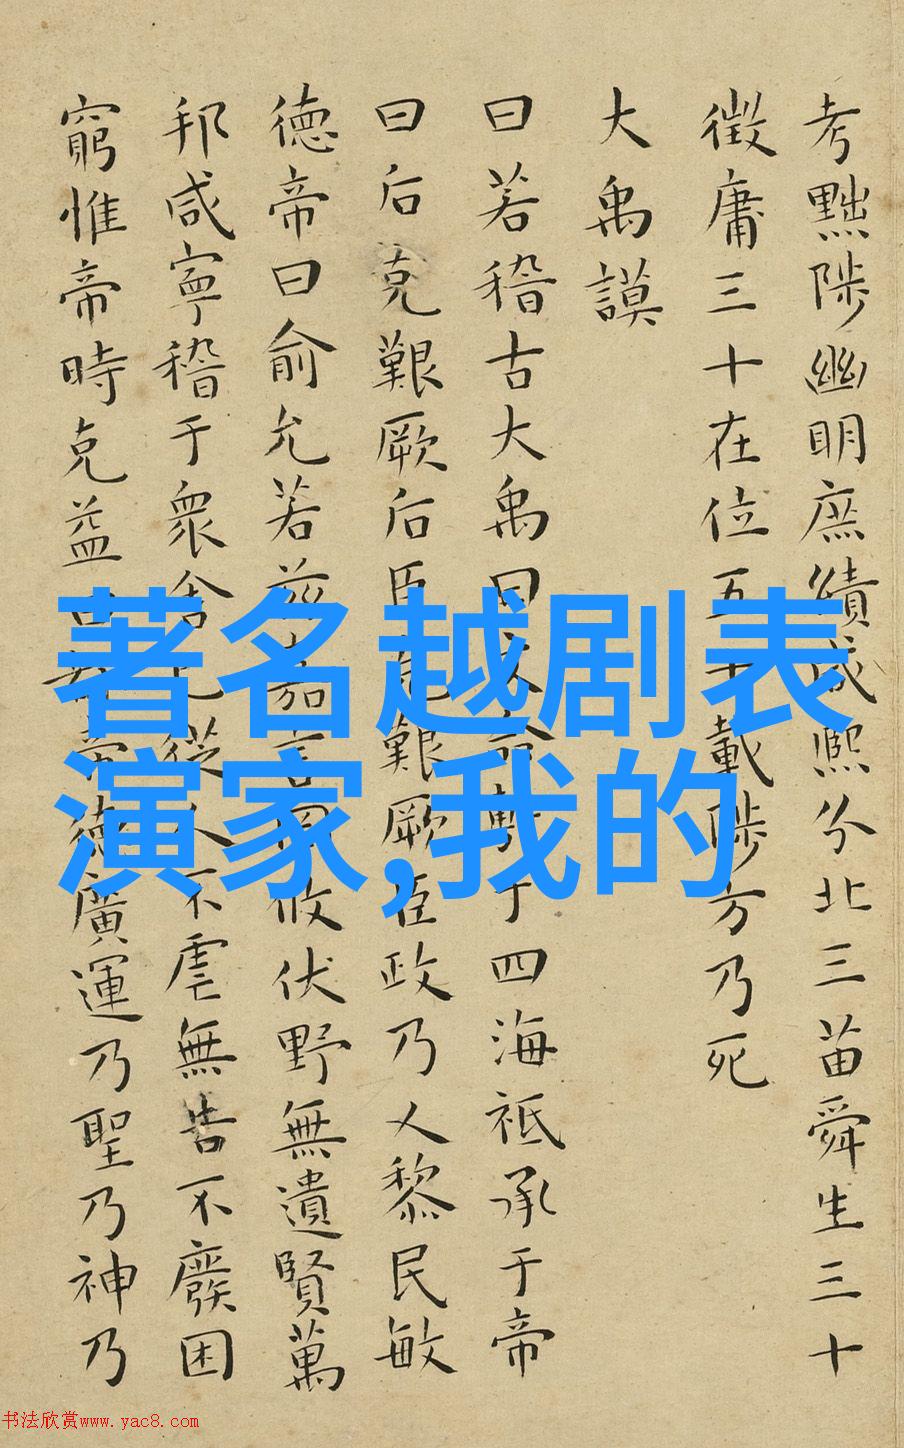 考黜陟幽明庶績咸熙分北三苗舜生三十
徵庸三十在位五十載陟方乃死
大禹謨
曰若稽古大禹曰文命敷于四海祗承于帝
曰后克艱厥后臣克艱厥臣政乃乂黎民敏
德帝曰俞允若茲嘉言罔攸伏野無遺賢萬
邦咸寧稽于衆舍己從人不虐無告不廢困
窮惟帝時克益曰都帝德廣運乃聖乃神乃
著名越剧表
演家,我的
书法欣赏www.yac8.com